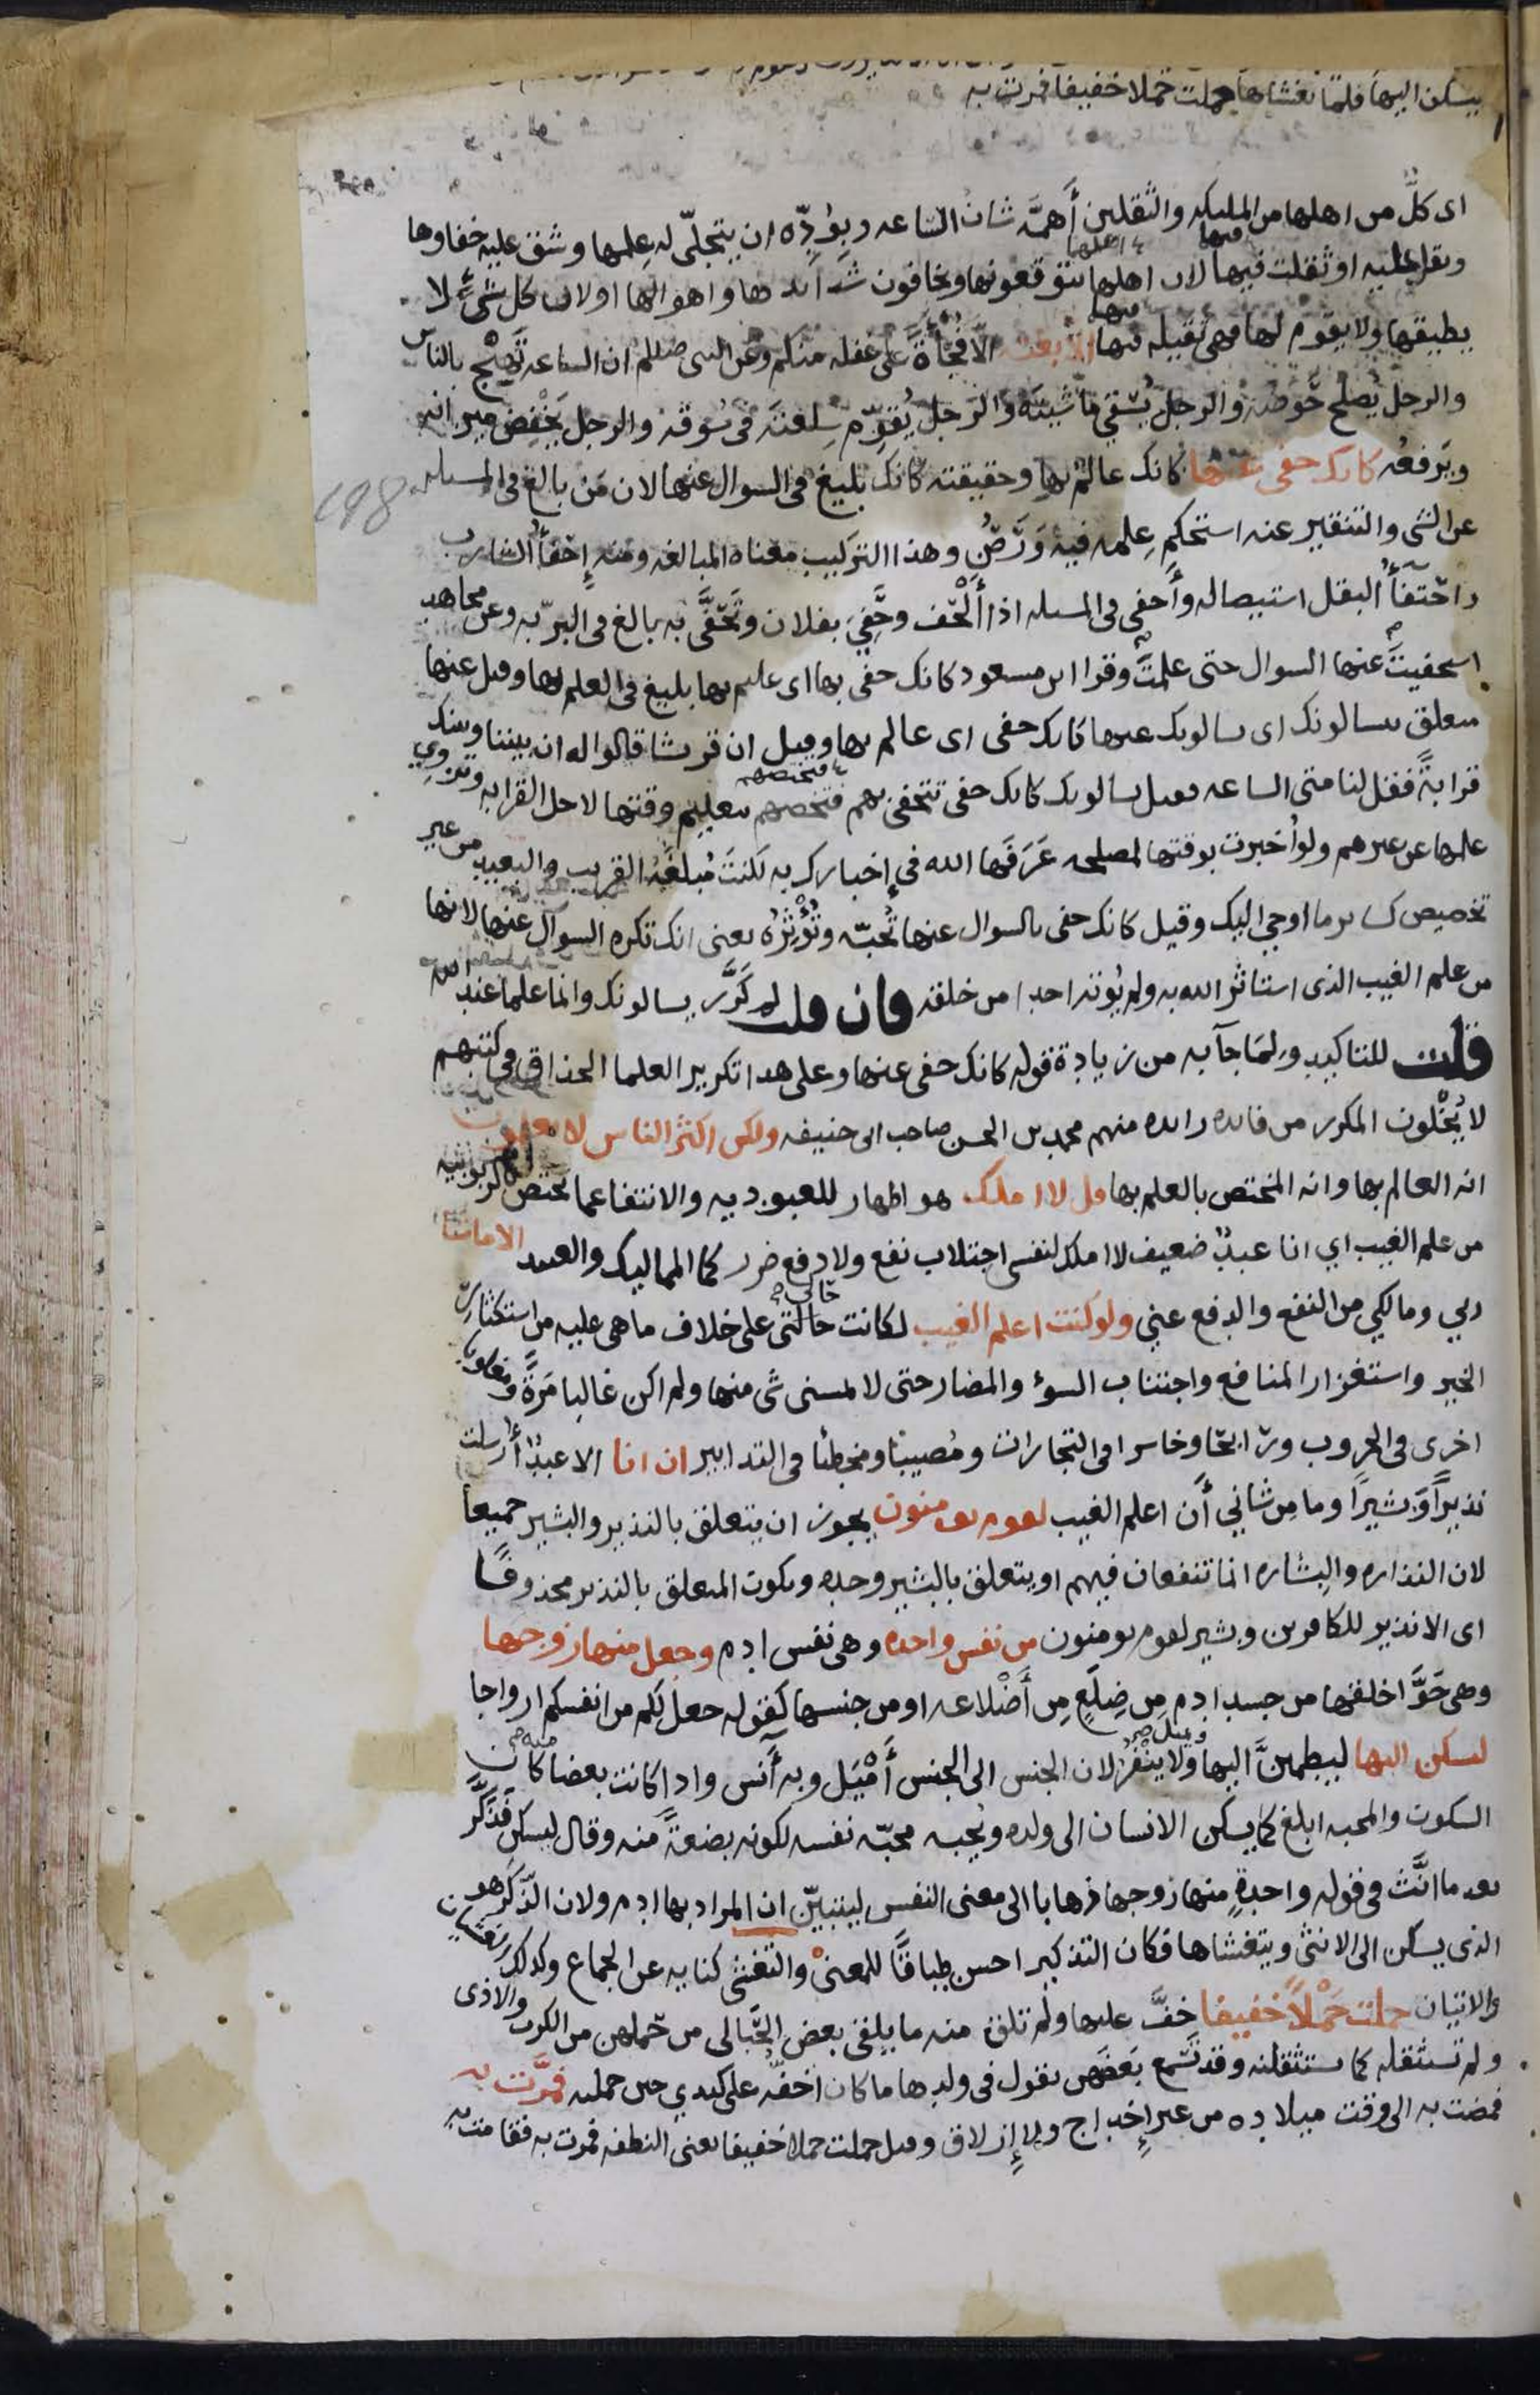 يسكن اليها فلما تغشاها حملت حملا خفيفا فمرت به
اى كلّ من اهلها من المليكه والثقلين أَهمَّه شان الساعه وبِوُدِّه ان يتجلّى له عِلمها وشق عليه خفاوها
وثقل عليه او ثقلت فيها لان اهلها يتوقعونها ويخافون شدآئدها واهوالها او لان كل شئ لا
يطيقها ولا يقوم لها فهى ثقيله فيها الا بغته الّا فُجْأةً على غفله منكم وعن النبى صللم ان الساعه تَهِيْج بالناس
والرجل يُصلح حَوضه والرجل يُسْقي مَاشيته والرجل يُقوِّم سِلعته فى سُوقه والرجل يَخْفِض ميزانه
ويَرفعُه كانك حفى عنها كانك عالم بها وحقيقته كانك بليغ فى السوال عنها لان مَن بالغ فى المسله
198
عن الشى والتنقير عنه استحكم عِلمه فيه وَرَصُن وهذا التركيب معناه المبالغه ومنه إحفآُ الشارب
واحْتفآُ البقل استيصاله وأحفى فى المسله اذا ألْحف وحَفِيَ بفلان وتَحفَّى به بالغ فى البرّ به وعن مجاهد
استحفيتَ عنها السوال حتى علمتَ وقرا ابن مسعود كانك حفى بها اى عليم بها بليغ فى العلم بها وقيل عنها
متعلق بيسالونك اى يسالونك عنها كانك حفى اى عالم بها وقيل ان قريشا قالوا له ان بيننا وبينك
قرابةً فقل لنا متى الساعه فقيل يسالونك كانك حفى تتحفى بهم فتختصهم بتعليم وقتها لاجل القرابه وتَزْوِي
علمها عن غيرهم ولو أخبرت بوقتها لمصلحه عَرَفَها الله فى إخبارك به لكنتَ مُبلغَهُ القريب والبعيد من غير
تخصيص كساير ما اوحي اليك وقيل كانك حفى بالسوال عنها تُحبّه وتُؤْثِرُه يعنى انك تكره السوآل عنها لانها
من علم الغيب الذى استاثر الله به ولم يُوته احدا من خلقه فان قلت لم كَرَّر يسالونك وانما علمها عند الله
قلت للتاكيد ولِمَا جآ به من زيادة قوله كانك حفى عنها وعلى هذا تكرير العلما الحذاق فى كتبهم
لا يُخْلون المكرر من فائده زائده منهم محمد بن الحسن صاحب ابى حنيفه ولكن اكثر الناس لا يعلمون
انه العالم بها وانه المختص بالعلم بها قل لا املك هو اظهار للعبوديه والانتفا عما يختص بالربوبيه
من علم الغيب اي انا عبدٌ ضعيف لا املك لنفسى اجتلاب نفع ولا دفع ضرر كما المماليك والعبيد الا ما شآ
ربي ومالكي من النفع والدفع عني ولو كنت اعلم الغيب لكانت حالتى على خلاف ما هى عليه من استكثار
الخير واستغزار المنافع واجتناب السوٓء والمضار حتى لا يمسنى شى منها ولم اكن غالبا مَرَّةً ومغلوبا
اخرى فى الحروب ورابحًا وخاسرا فى التجارات ومُصيبًا ومخطئا فى التدابير ان انا الا عبدٌ أُرسلت
نذيراً وَبشيرًا وما مِن شاني أَن اعلم الغيب لقوم يومنون يجوز ان يتعلق بالنذير والبشير جميعا
لان النذاره والبشاره انما تنفعان فيهم او يتعلق بالبشير وحده ويكون المتعلق بالنذير محذوفًا
اى الا نذير للكافرين وبشير لقوم يومنون من نفس واحده وهى نفس ادم وجعل منها زوجها
وهى حَوَّا خلقها من جسد ادم مِن ضِلَعٍ مِن أَضْلاعه او من جنسها كقوله جعل لكم من انفسكم ازواجا
ليسكن اليها ليطمينَّ اليها ويميل ولا ينْفُر لان الجنس الى الجنس أَمْيَل وبه أنَس واذا كانت بعضا منه كان
السكون والمحبه ابلغ كما يسكن الانسان الى ولده ويُحبه محبّه نفسه لكونه بضعةً منه وقال ليسكن فذكَّر
بعد ما انَّث فى قوله واحدةٍ منها زوجها ذهابا الى معنى النفس ليتبيّن ان المراد بها ادم ولان الذكر هو
الذى يسكن الى الانثى ويتغشاها فكان التذكير احسن طِباقًا للمعنى والتغشى كنايه عن الجماع وكذلك الغشيان
والاتيان حملت حَمْلًا خفيفا خفَّ عليها ولم تلق منه ما يلقى بعض الحَبالى من حَملهن من الكرب والاذى
ولم تستثقله كما يستثقلنه وقد تَسْمع بَعضَهن تقول فى ولدها ما كان اخفّه على كبدي حين حملته فمَرَّت به
فمضت به الى وقت ميلاده من غير إخداج ولا إزلاق وقيل حملت حملا خفيفا يعنى النطفه فمرت به فقامت به